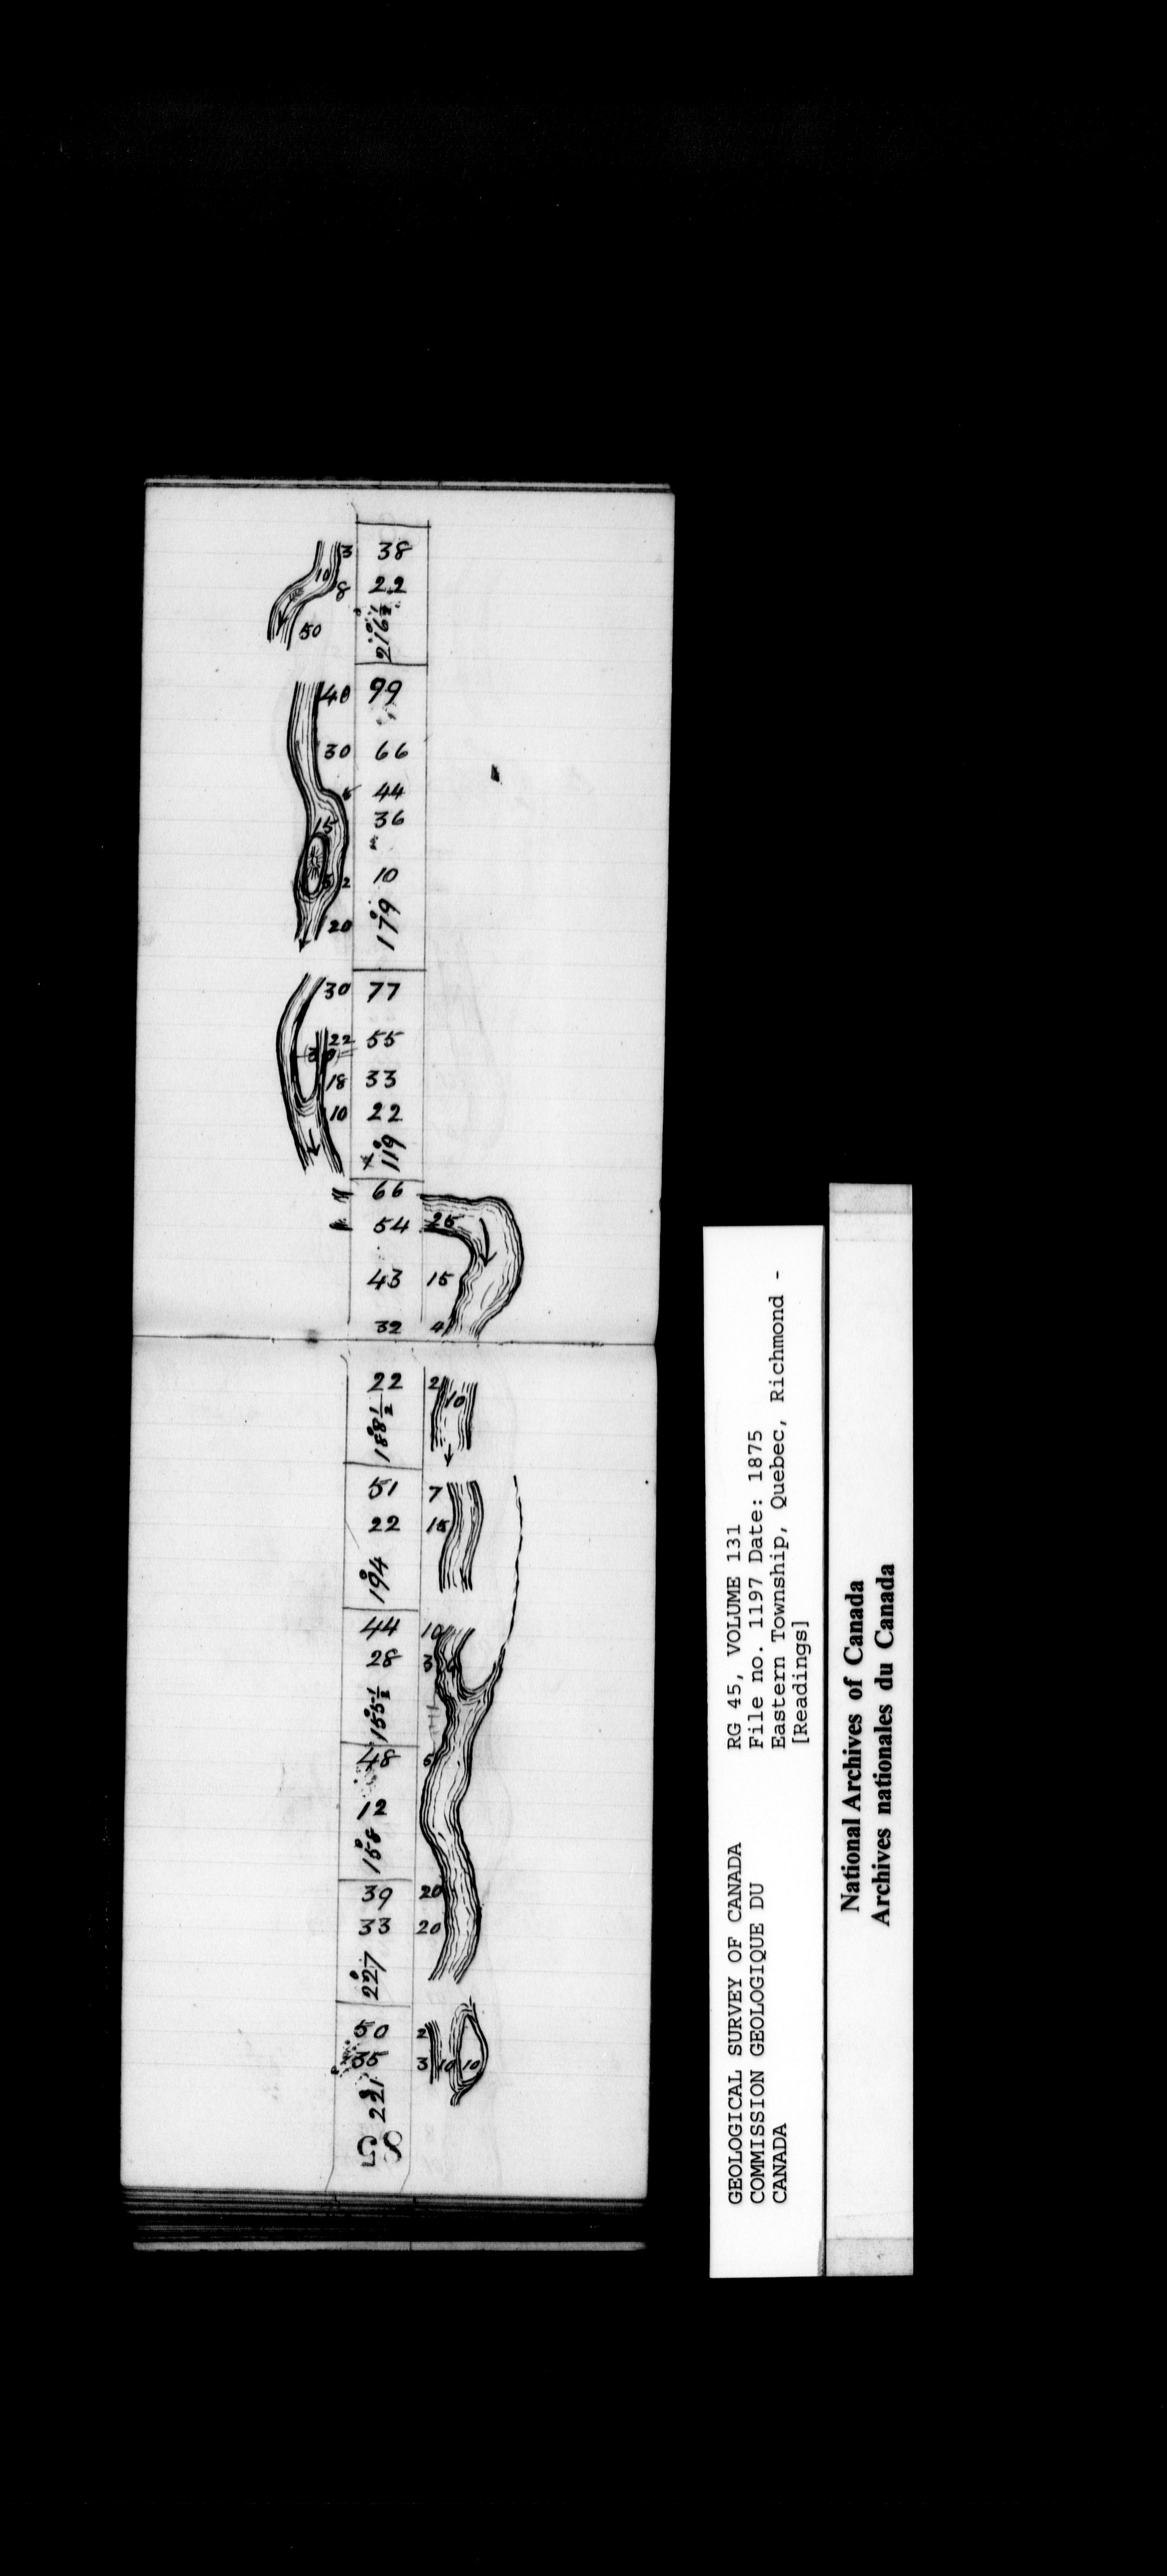 3 38
10
8 22
216½°
50
40 99
30 66
44
15 36
5 2 10
179°
20
30 77
22 55
18 33
10 22
119°
66
54 25
43 15
32 4
22 2 10
188½°
51 7
22 15
194°
44 10
28 3
155½°
48 6
12
158°
39 20
33 20
227°
50 2
35 3 10 10
221°
85
GEOLOGICAL SURVEY OF CANADA
COMMISSION GEOLOGIQUE DU
CANADA
RG 45, VOLUME 131
File no. 1197 Date: 1875
Eastern Township, Quebec, Richmond -
[Readings]
National Archives of Canada
Archives nationales du Canada